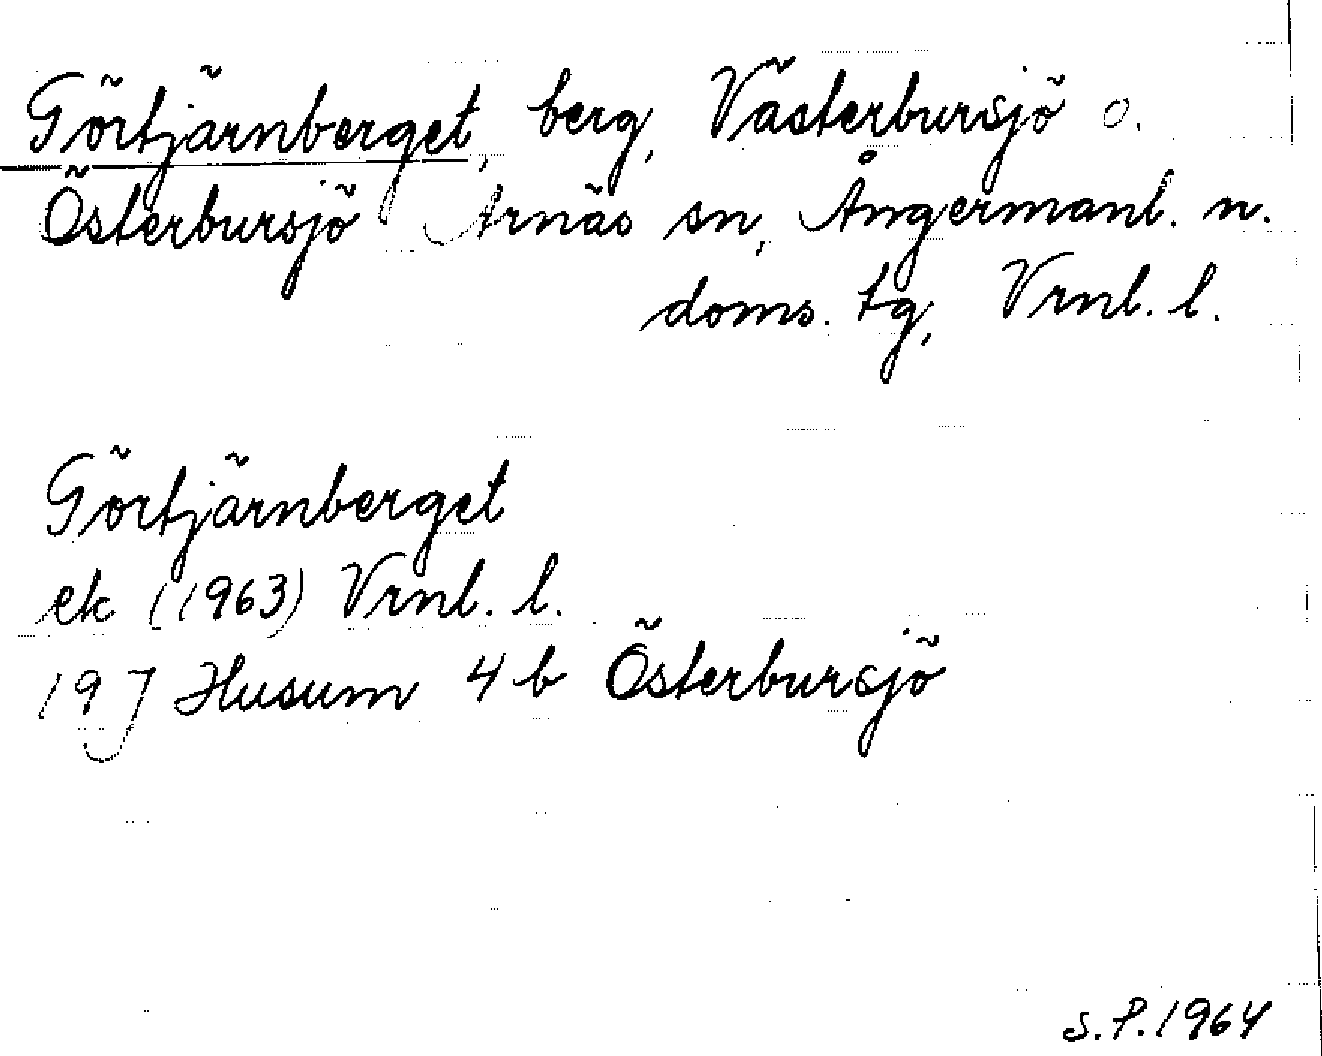 Görtjärnberget, berg, Västerbursjö o.
Österbursjö Arnäs sn, Ångermanl. n.
doms. tg, Vrnl. l.
Görtjärnberget
ek (1963) Vrnl. l.
19 J Husum 4 b Österbursjö
S.P. 1964